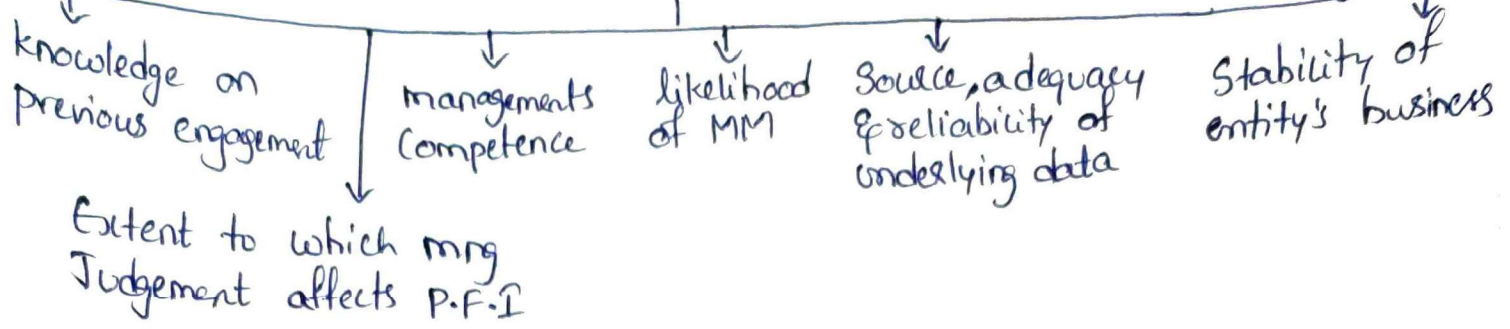 knowledge on
previous engagement
Extent to which mng
Judgement affects P.F.I
managements
Competence
likelihood
of MM
Source, adequacy
& reliability of
underlying data
Stability of
entity's business